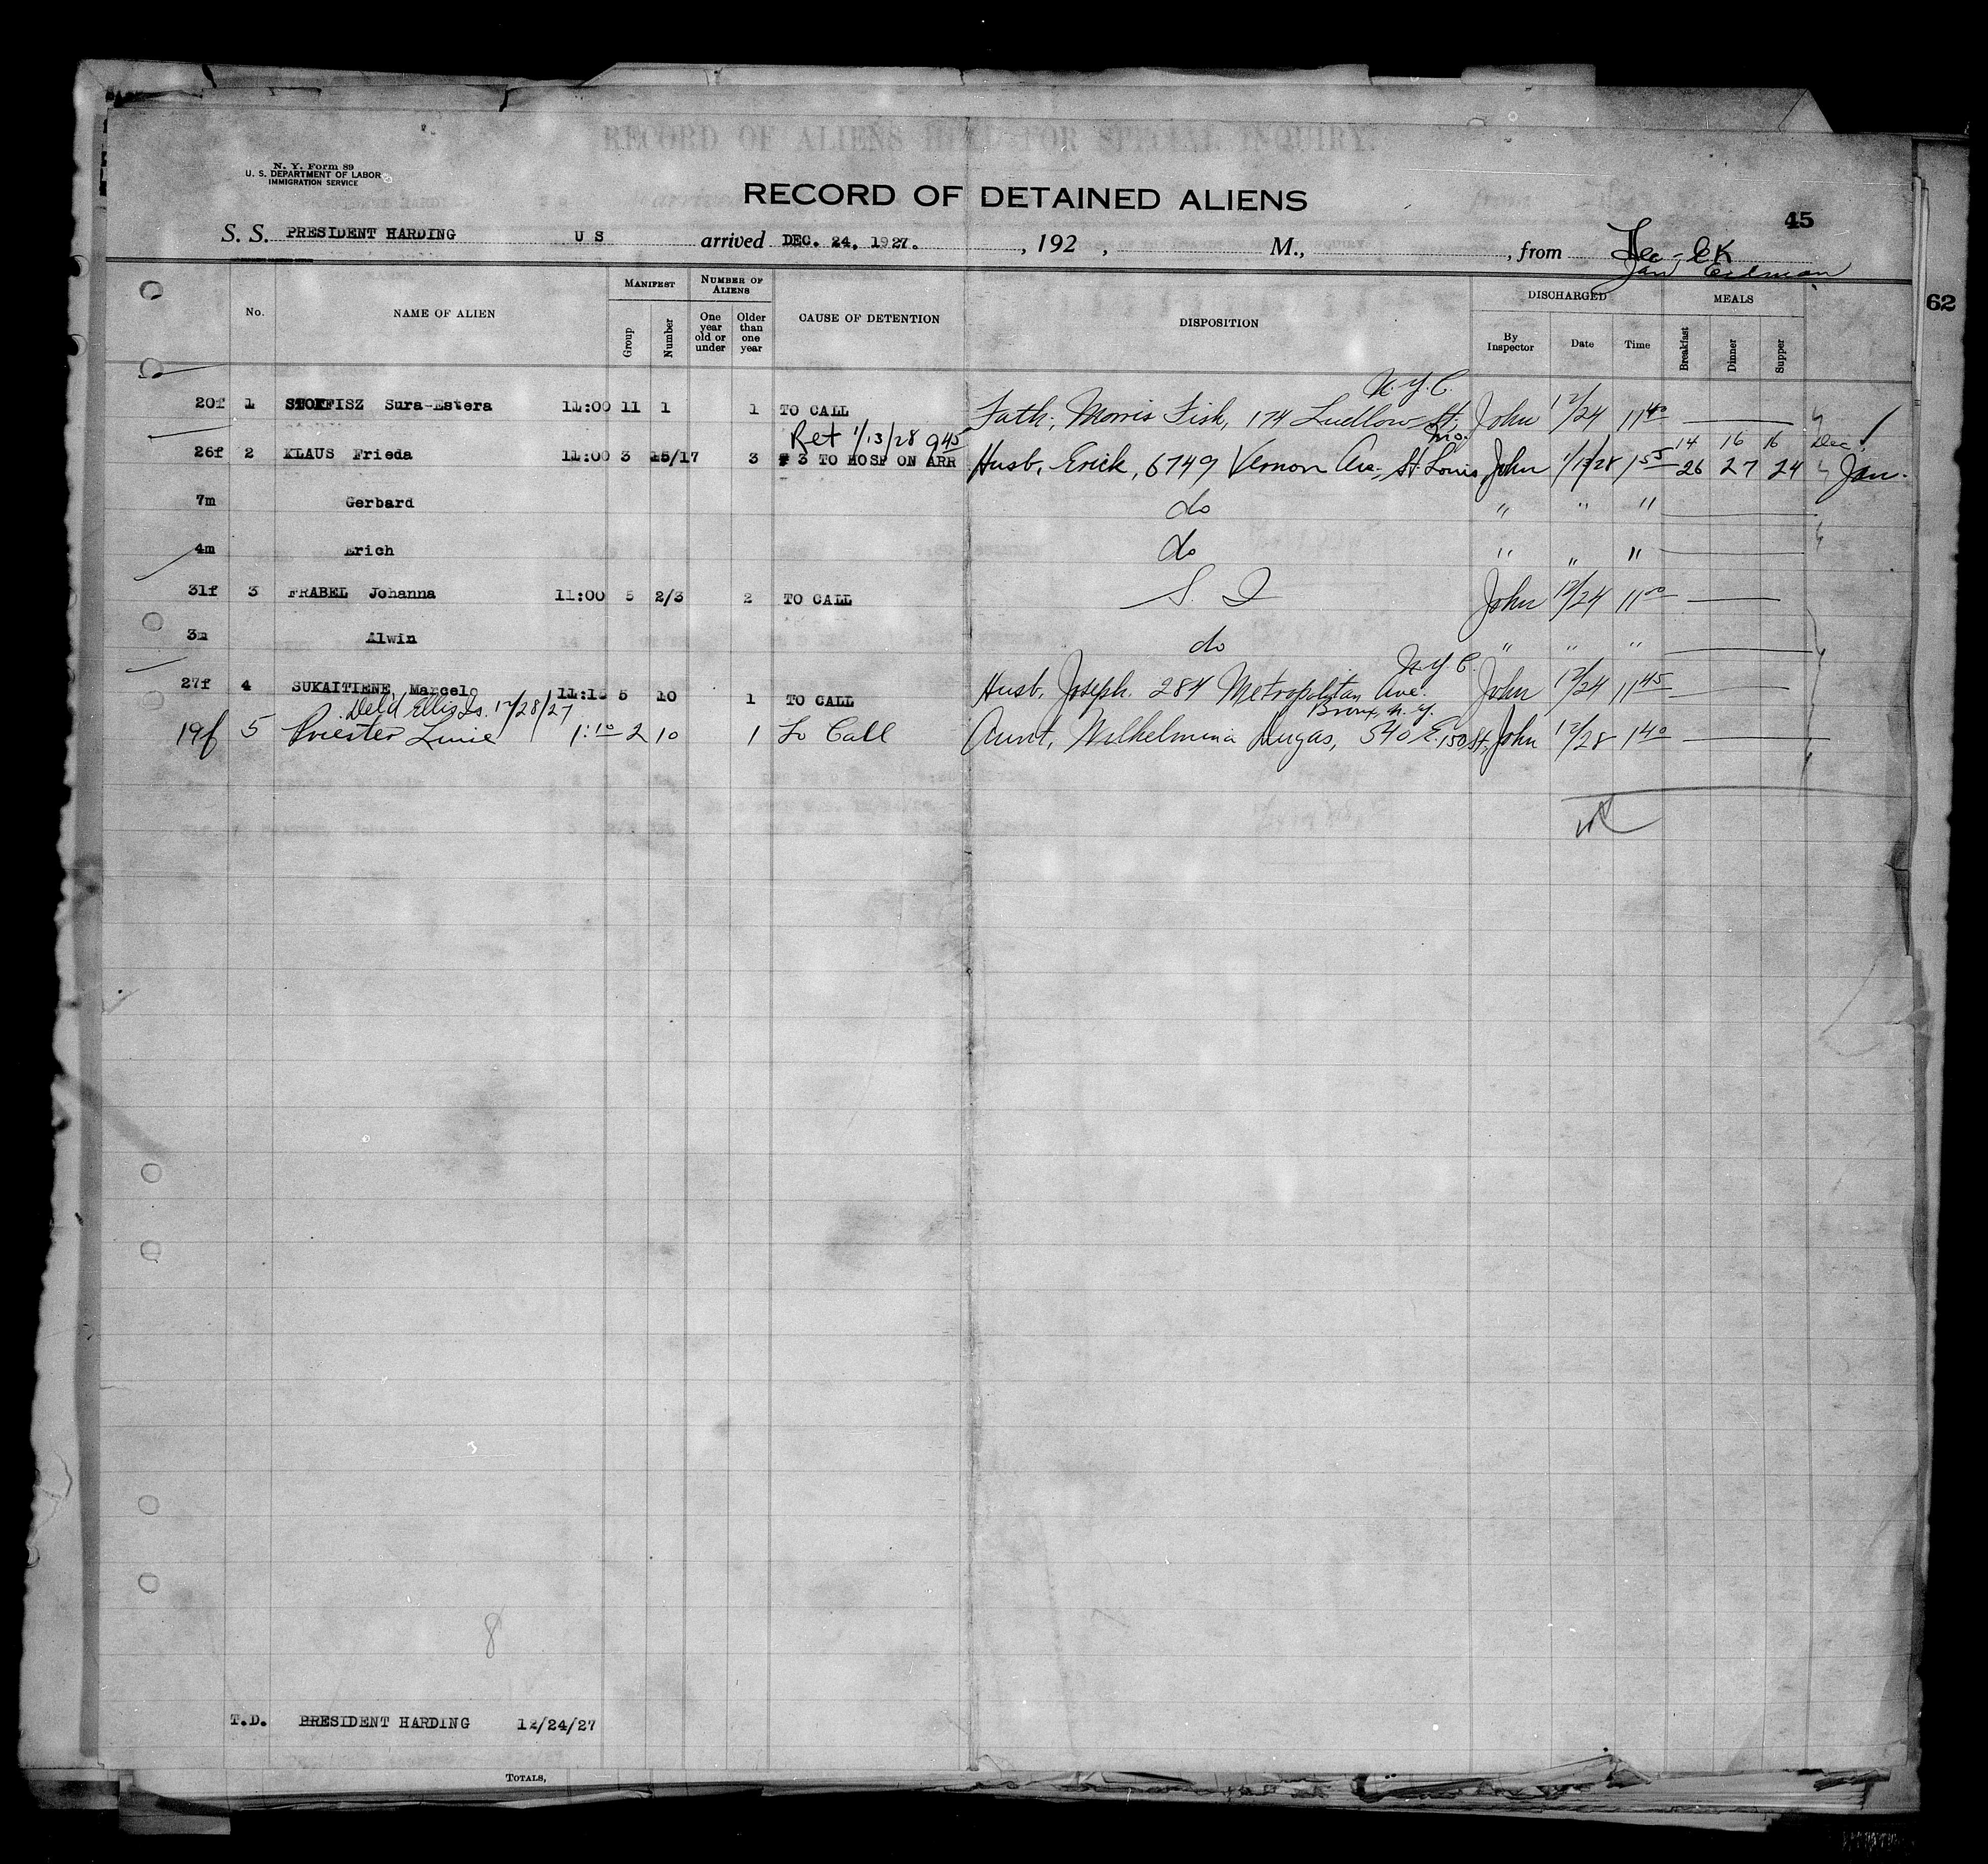 RECORD OF ALIENS HELD FOR SPECIAL INQUIRY.
N. Y. Form 89
U. S. DEPARTMENT OF LABOR
IMMIGRATION SERVICE
RECORD OF DETAINED ALIENS
45
S. S. PRESIDENT HARDING U S arrived DEC. 24, 1927. , 192 , M., , from
62
No. NAME OF ALIEN MANIFEST Group Number NUMBER OF ALIENS One year old or under Older than one year CAUSE OF DETENTION DISPOSITION DISCHARGED By Inspector Date Time MEALS Breakfast Dinner Supper
N.Y.C.
20f 1 STOKFISZ Sura-Estera 11:00 11 1 1 TO CALL Fath, Morris Fish, 174 Ludlow St, John 12/24 11 40
Ret 1/13/28 9 45 Mo. 14 16 16 Dec.
26f 2 KLAUS Frieda 11:00 3 15/17 3 # 3 TO HOSP ON ARR Husb, Erick, 6749 Vernon Ave., St. Louis, John 1/13/28 1 55 26 27 24 Jan.
7m Gerbard do " " "
4m Erich do " " "
31f 3 FRABEL Johanna 11:00 5 2/3 2 TO CALL S. I John 12/24 11 00
3m Alwin do " " "
N.Y.C.
27f 4 SUKAITIENE, Marcelo 11:15 5 10 1 TO CALL Husb, Joseph. 284 Metropolitan Ave. John 12/24 11 45
Deld Ellis Is. 12/28/27 Bronx, N.Y.
19f 5 Priester Linie 1:10 2 10 1 To Call Aunt, Wilhelmina Dugas, 540 E. 150 St, John 12/28 1 40
8
T.D. PRESIDENT HARDING 12/24/27
TOTALS,